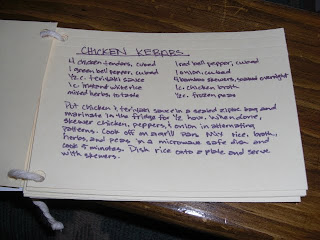 CHICKEN KEBABS
4 chicken tenders, cubed
1 green bell pepper, cubed
1/2 c. teriyaki sauce
1 c. instant white rice
mixed herbs to taste
1 red bell pepper, cubed
1 onion, cubed
4 bamboo skewers, soaked overnight
1 c. chicken broth
1/2 c. frozen peas
Put chicken & teriyaki sauce in a sealed ziploc bag and
marinate in the fridge for 1/2 hour. When done,
skewer chicken, peppers, & onion in alternating
patterns. Cook off on a grill pan. Mix rice, broth,
herbs, and peas in a microwave safe dish and
cook 5 minutes. Dish rice onto a plate and serve
with skewers.